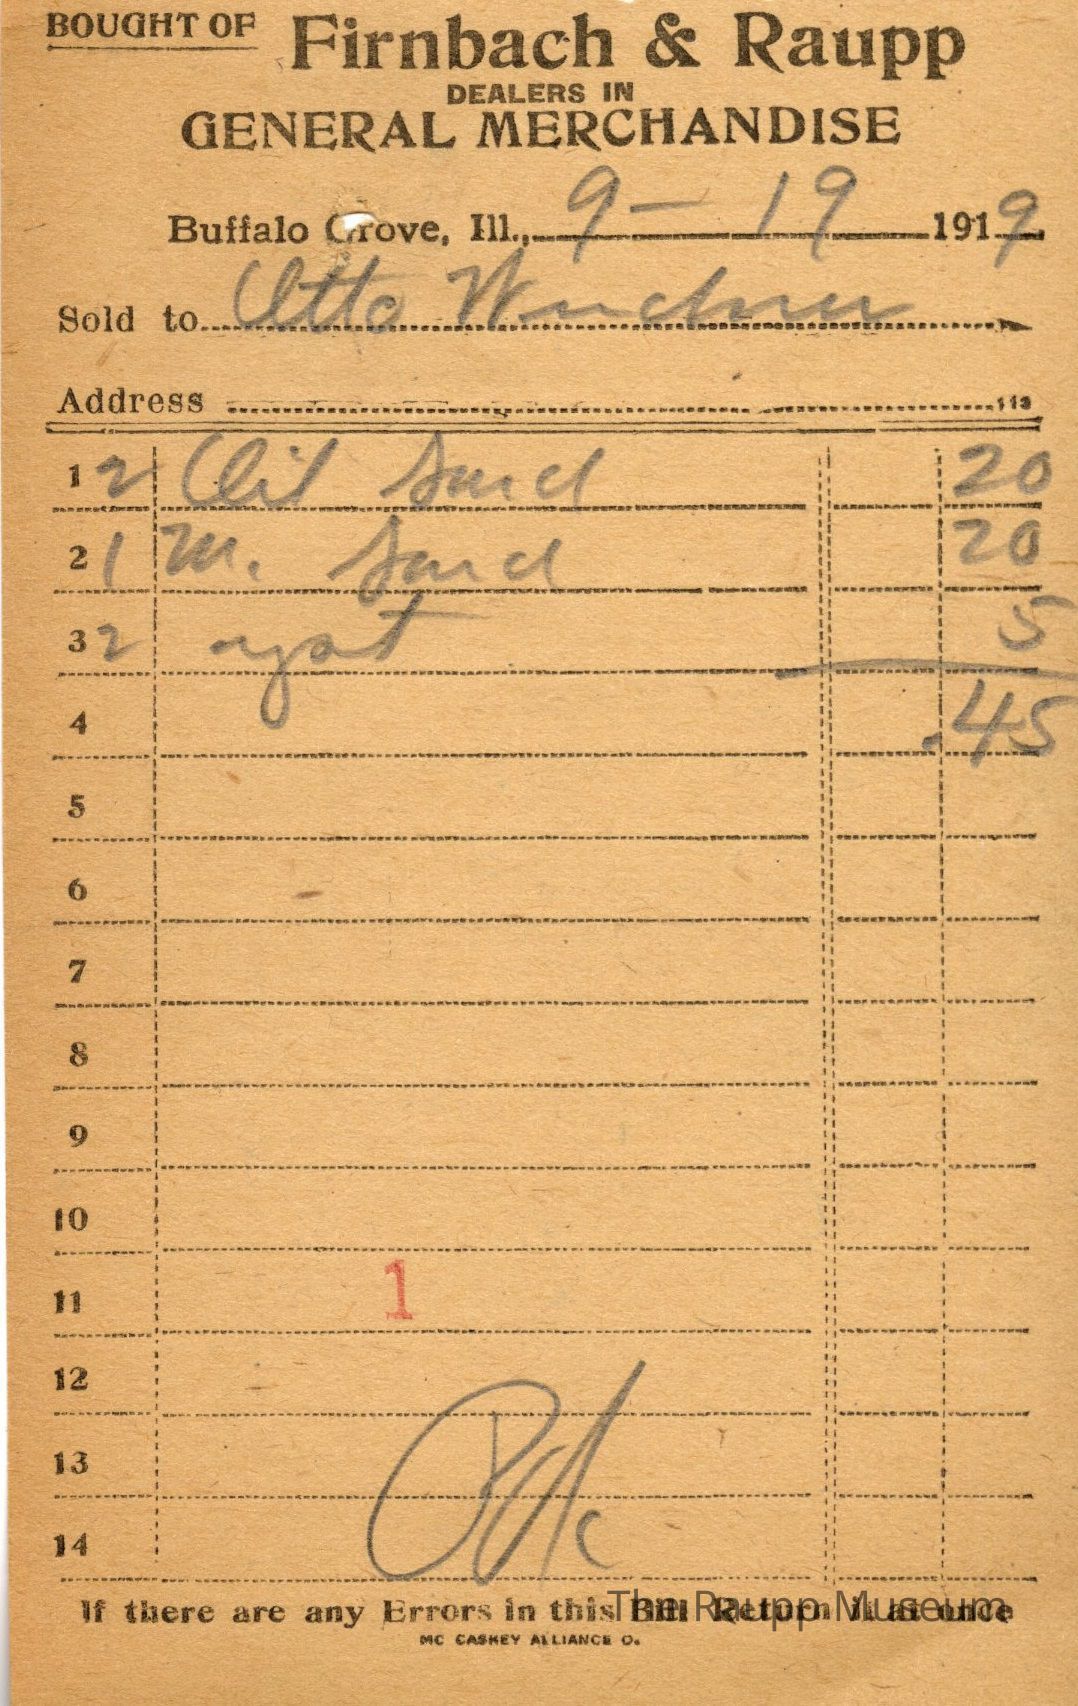 BOUGHT OF Firnbach & Raupp
DEALERS IN
GENERAL MERCHANDISE
Buffalo Grove, Ill., 9-19 1919
Sold to Otto
Address 113
1 2 Oil Sard 20
2 1 M. Sard 20
3 2 5
4 .45
5
6
7
8
9
10
11 1
12
13
14
Pd
If there are any Errors in this Bill Return it at once
The Raupp Museum
MC CASKEY ALLIANCE O.